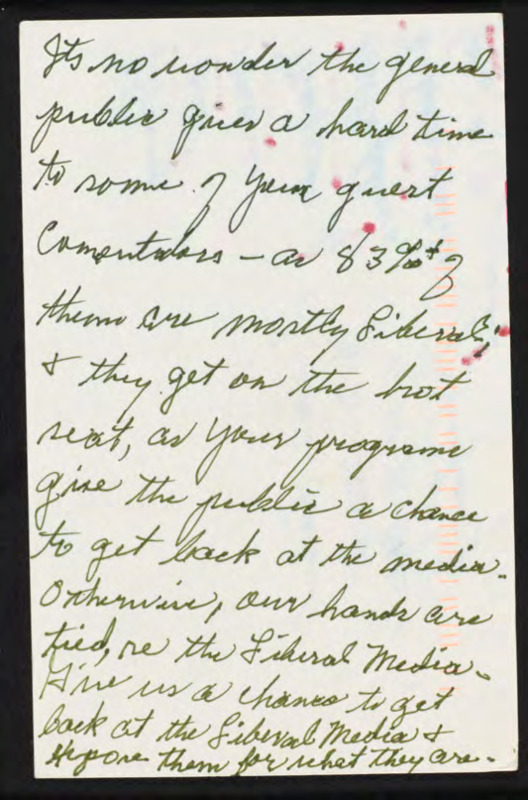 Its no wonder the general
public gives a hard time
to some of your guest
Comentators - as 83%+ of
them are mostly Liberal,
& they get on the hot
seat, as your programs
give the public a chance
to get back at the media.
Otherwise, our hands are
tied, re the Liberal Media.
Give us a chance to get
back at the Liberal Media &
expose them for what they are.